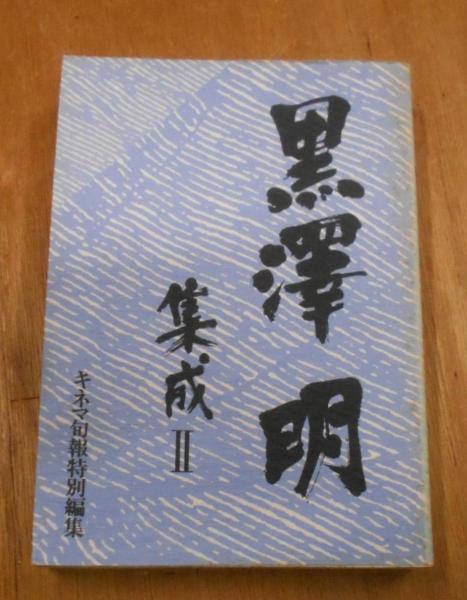 黒澤明
集成II
キネマ旬報特別編集